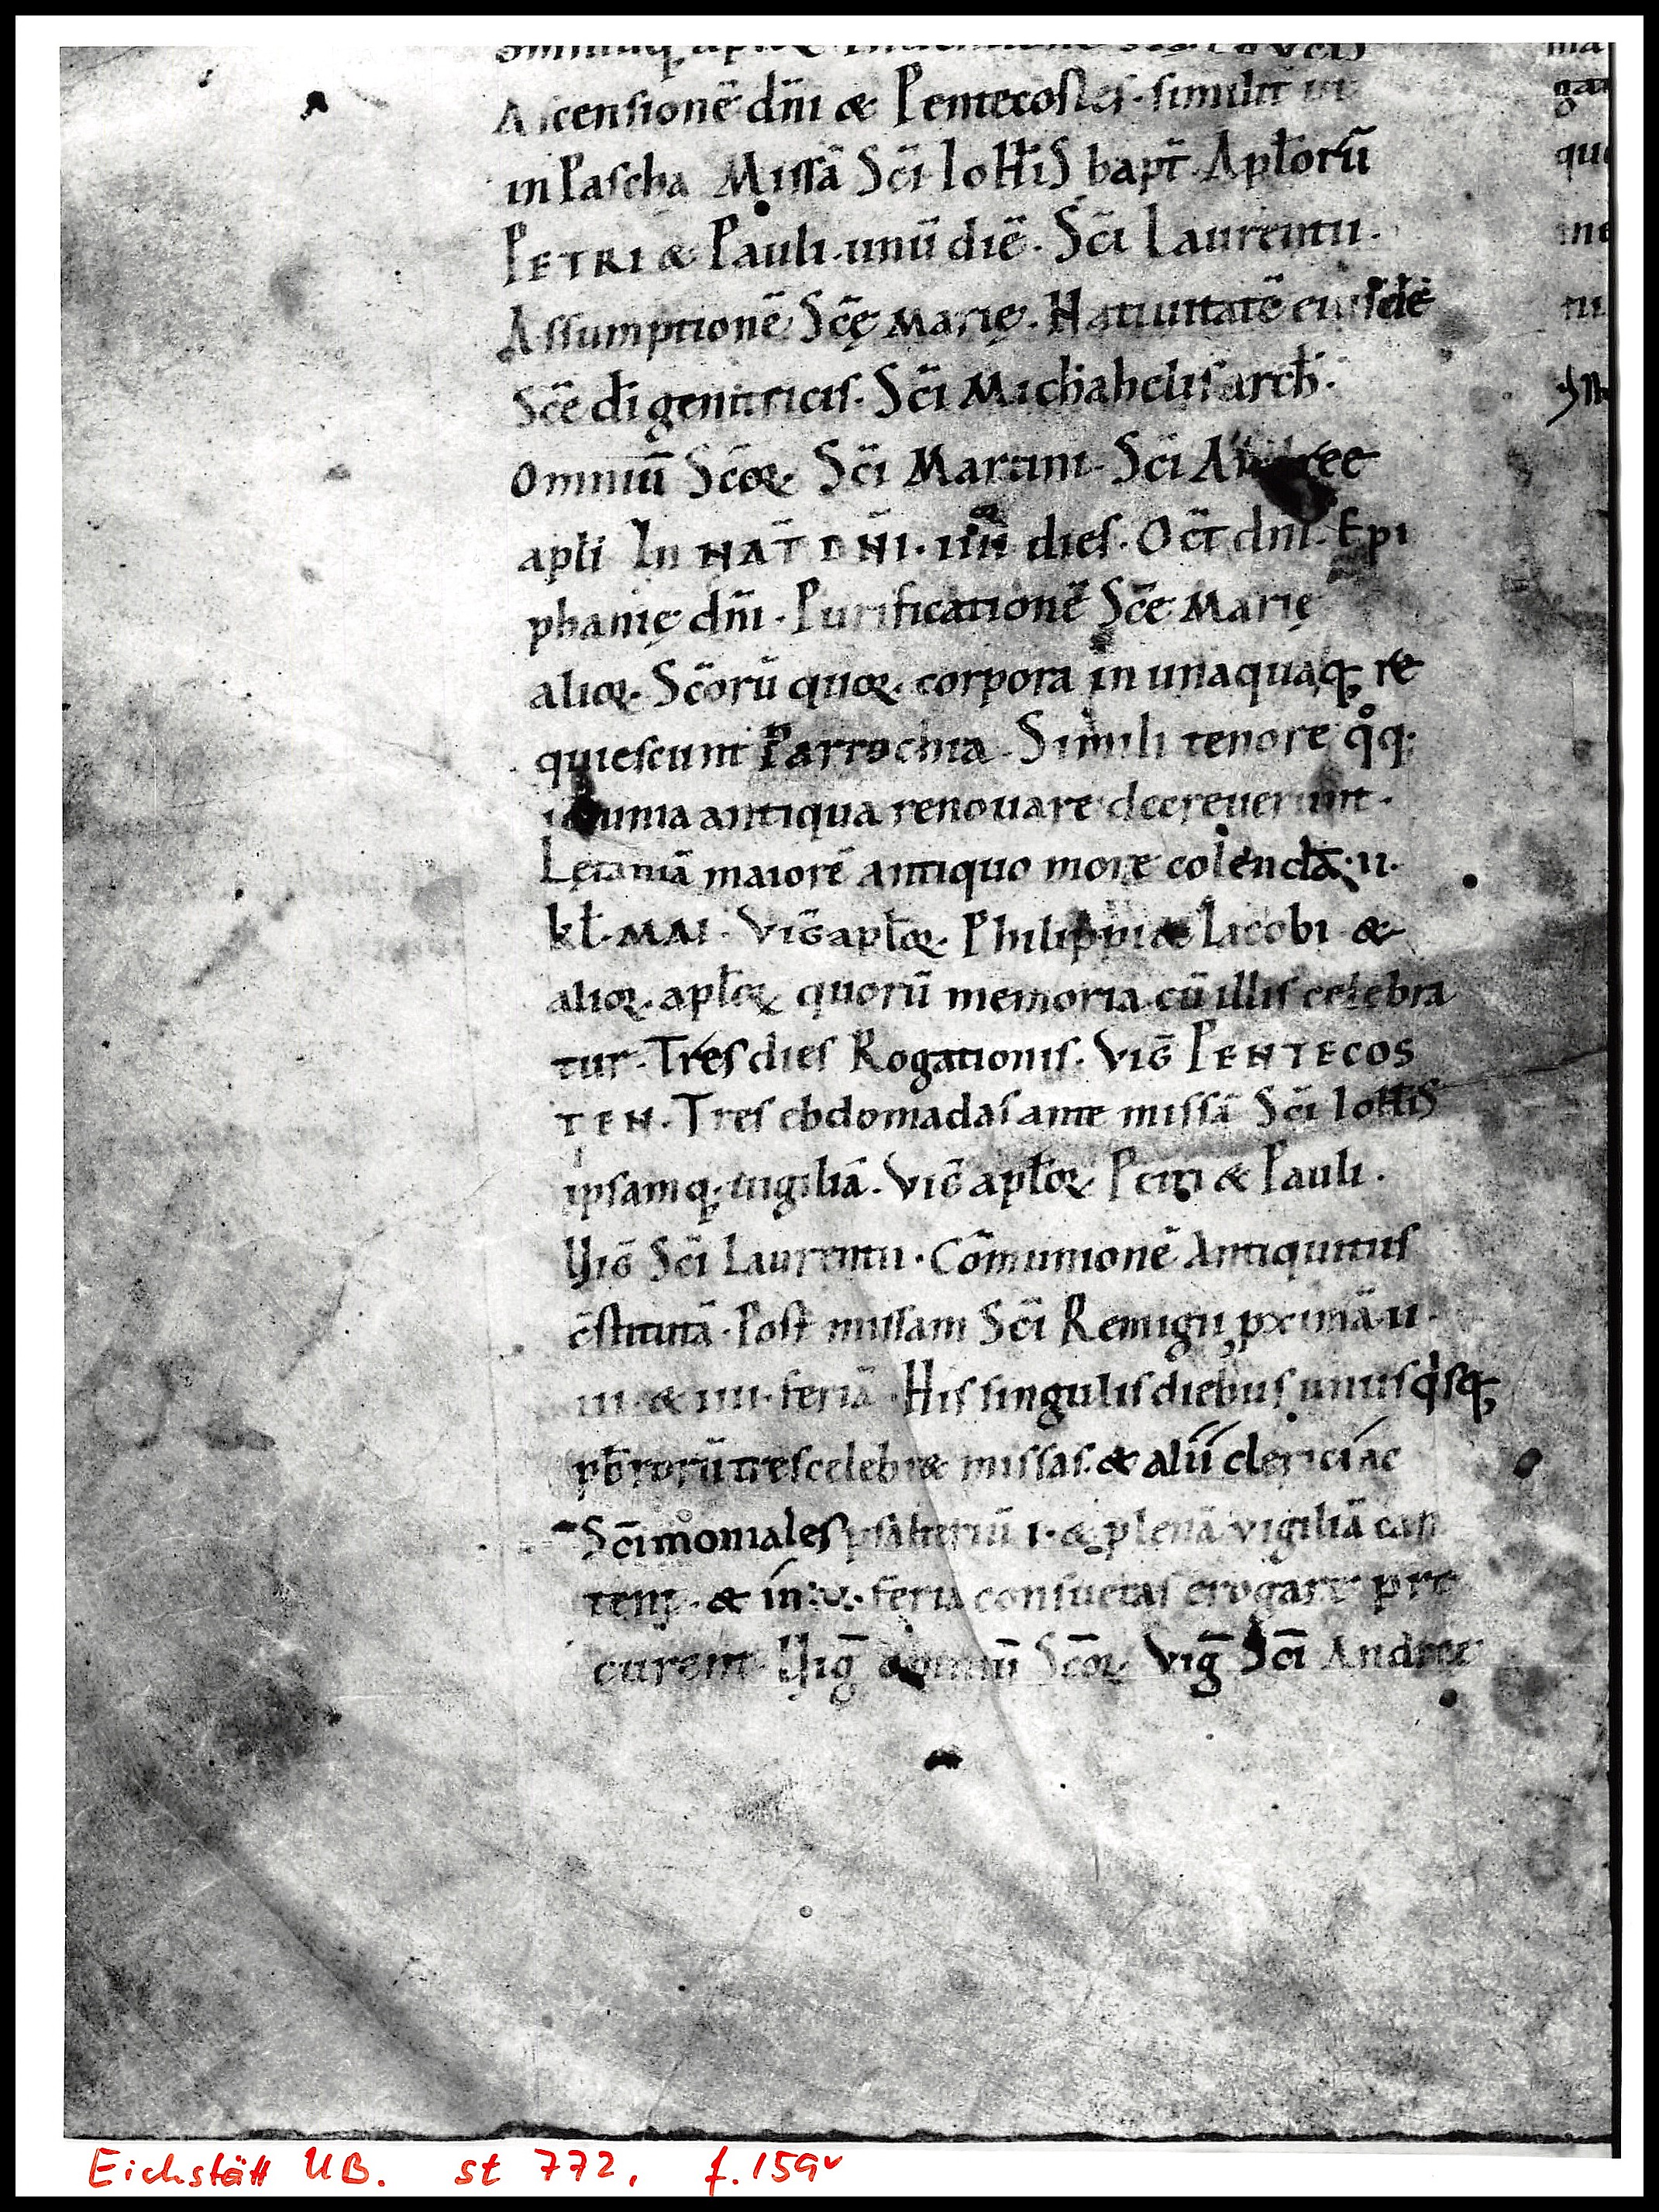 Ascensionē dn̄i & Pentecostes · similit̄ ut
in Pascha Missā Sc̄i IoħiS bapt̄. Apl̄orū
PETRI & Pauli · unū diē · Sc̄i Laurentii ·
Assumptionē Sc̄ę Marię · Natiuitatē eiusdē
Sc̄e dī genitricis · Sc̄i Michahelis arch̄ ·
omniū Sc̄oꝝ · Sc̄i Martini · Sc̄i Andree
apl̄i In NAT̄ DN̄I · iiii dies · Oct̄ dn̄i · Epi
phanię dn̄i · Purificationē Sc̄e Marię
alioꝝ · Sc̄orū quoꝝ · corpora in unaquaq; re
quiescunt Parrochia · Simili tenore qͦq;
ieiunia antiqua renouare decreuerunt ·
Lętaniā maiorē antiquo more colendā · ii ·
kl̄ · MAI · Viḡ apl̄oꝝ · Philippi & Iacobi · &
alioꝝ · apl̄oꝝ quorū memoria cū illis celebra
tur · Tres dies Rogationis · Viḡ PENTECOS
TEN · Tres ebdomadas ante missā Sc̄i IoħiS
ipsamq; uigiliā · Viḡ apl̄oꝝ Petri & Pauli ·
Viḡ Sc̄i Laurentii · Cōmunionē Antiquitus
c̄stitutā · Post missam Sc̄i Remigii ꝓximā · ii ·
iii · & iiii · feriā · His singulis diebus unusqisq;
pb̄rorū tres celebr& missas · & alii clerici ac
Sc̄imoniales psalteriū i · & plenā vigiliā can
tent · & in · v · feria consuetas erogare pro
curent · Viḡ omniū Sc̄oꝝ Viḡ Sc̄i Andree
ma
gat
que
ine
Eichstätt UB. st 772, f. 159v